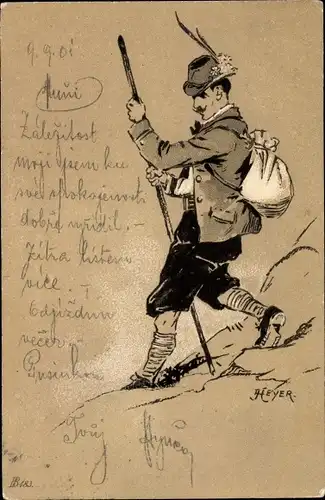 9. 9. 01
Záležitost
moji jsem ku
své spokojenosti
dobře vyřídil. -
Zítra listem
více. -
Odjíždím
večer -
Tvůj
HEYER.